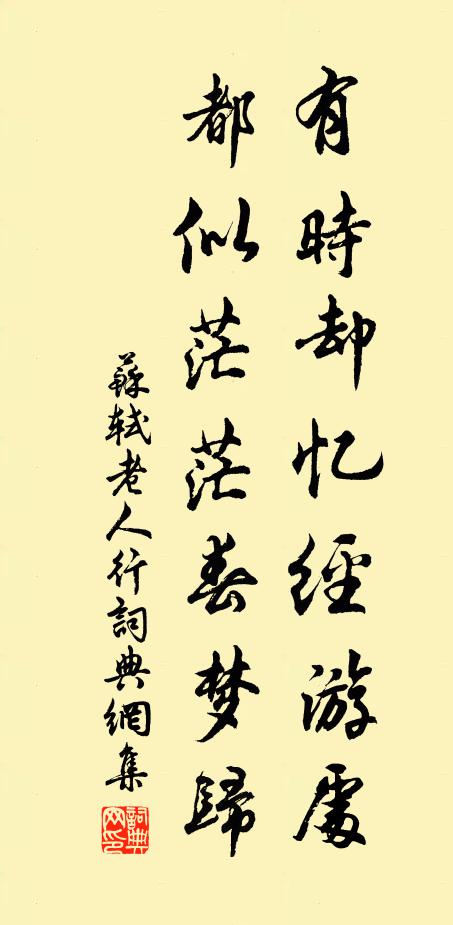 有時却忆經游處
都似茫茫春梦歸
蘇軾老人行詞典網集
詞典网印